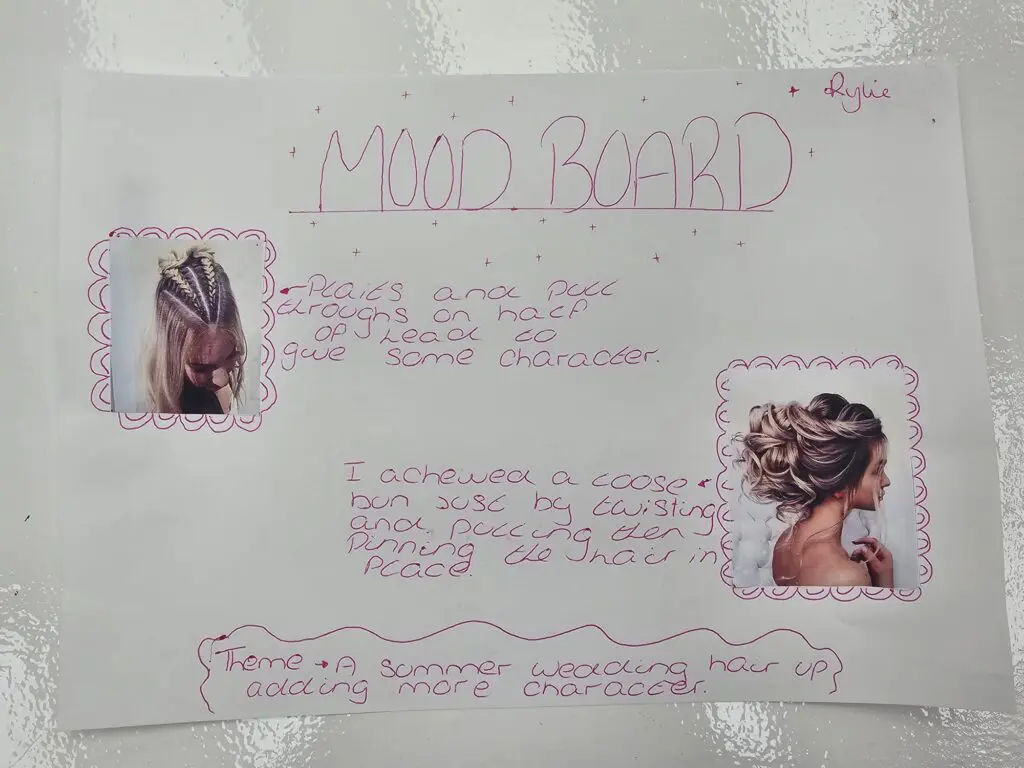 Rylie
MOOD BOARD
Plaits and pull
throughs on half
of head to
give some character.
I acheived a loose
bun just by twisting
and pulling then
pinning the hair in
place.
Theme → A summer wedding hair up
adding more character.